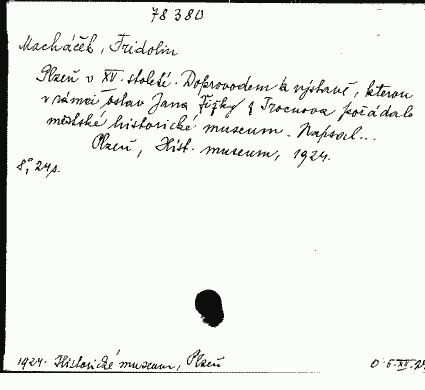 78380
Macháček, Fridolin
Plzeň v XV. století. Doprovodem k výstavě, kterou
v rámci oslav Jana Žižky z Trocnova pořádalo
městské historické museum. Napsal...
Plzeň, Hist. museum, 1924.
8°, 24 s.
1924. Historické museum, Plzeň